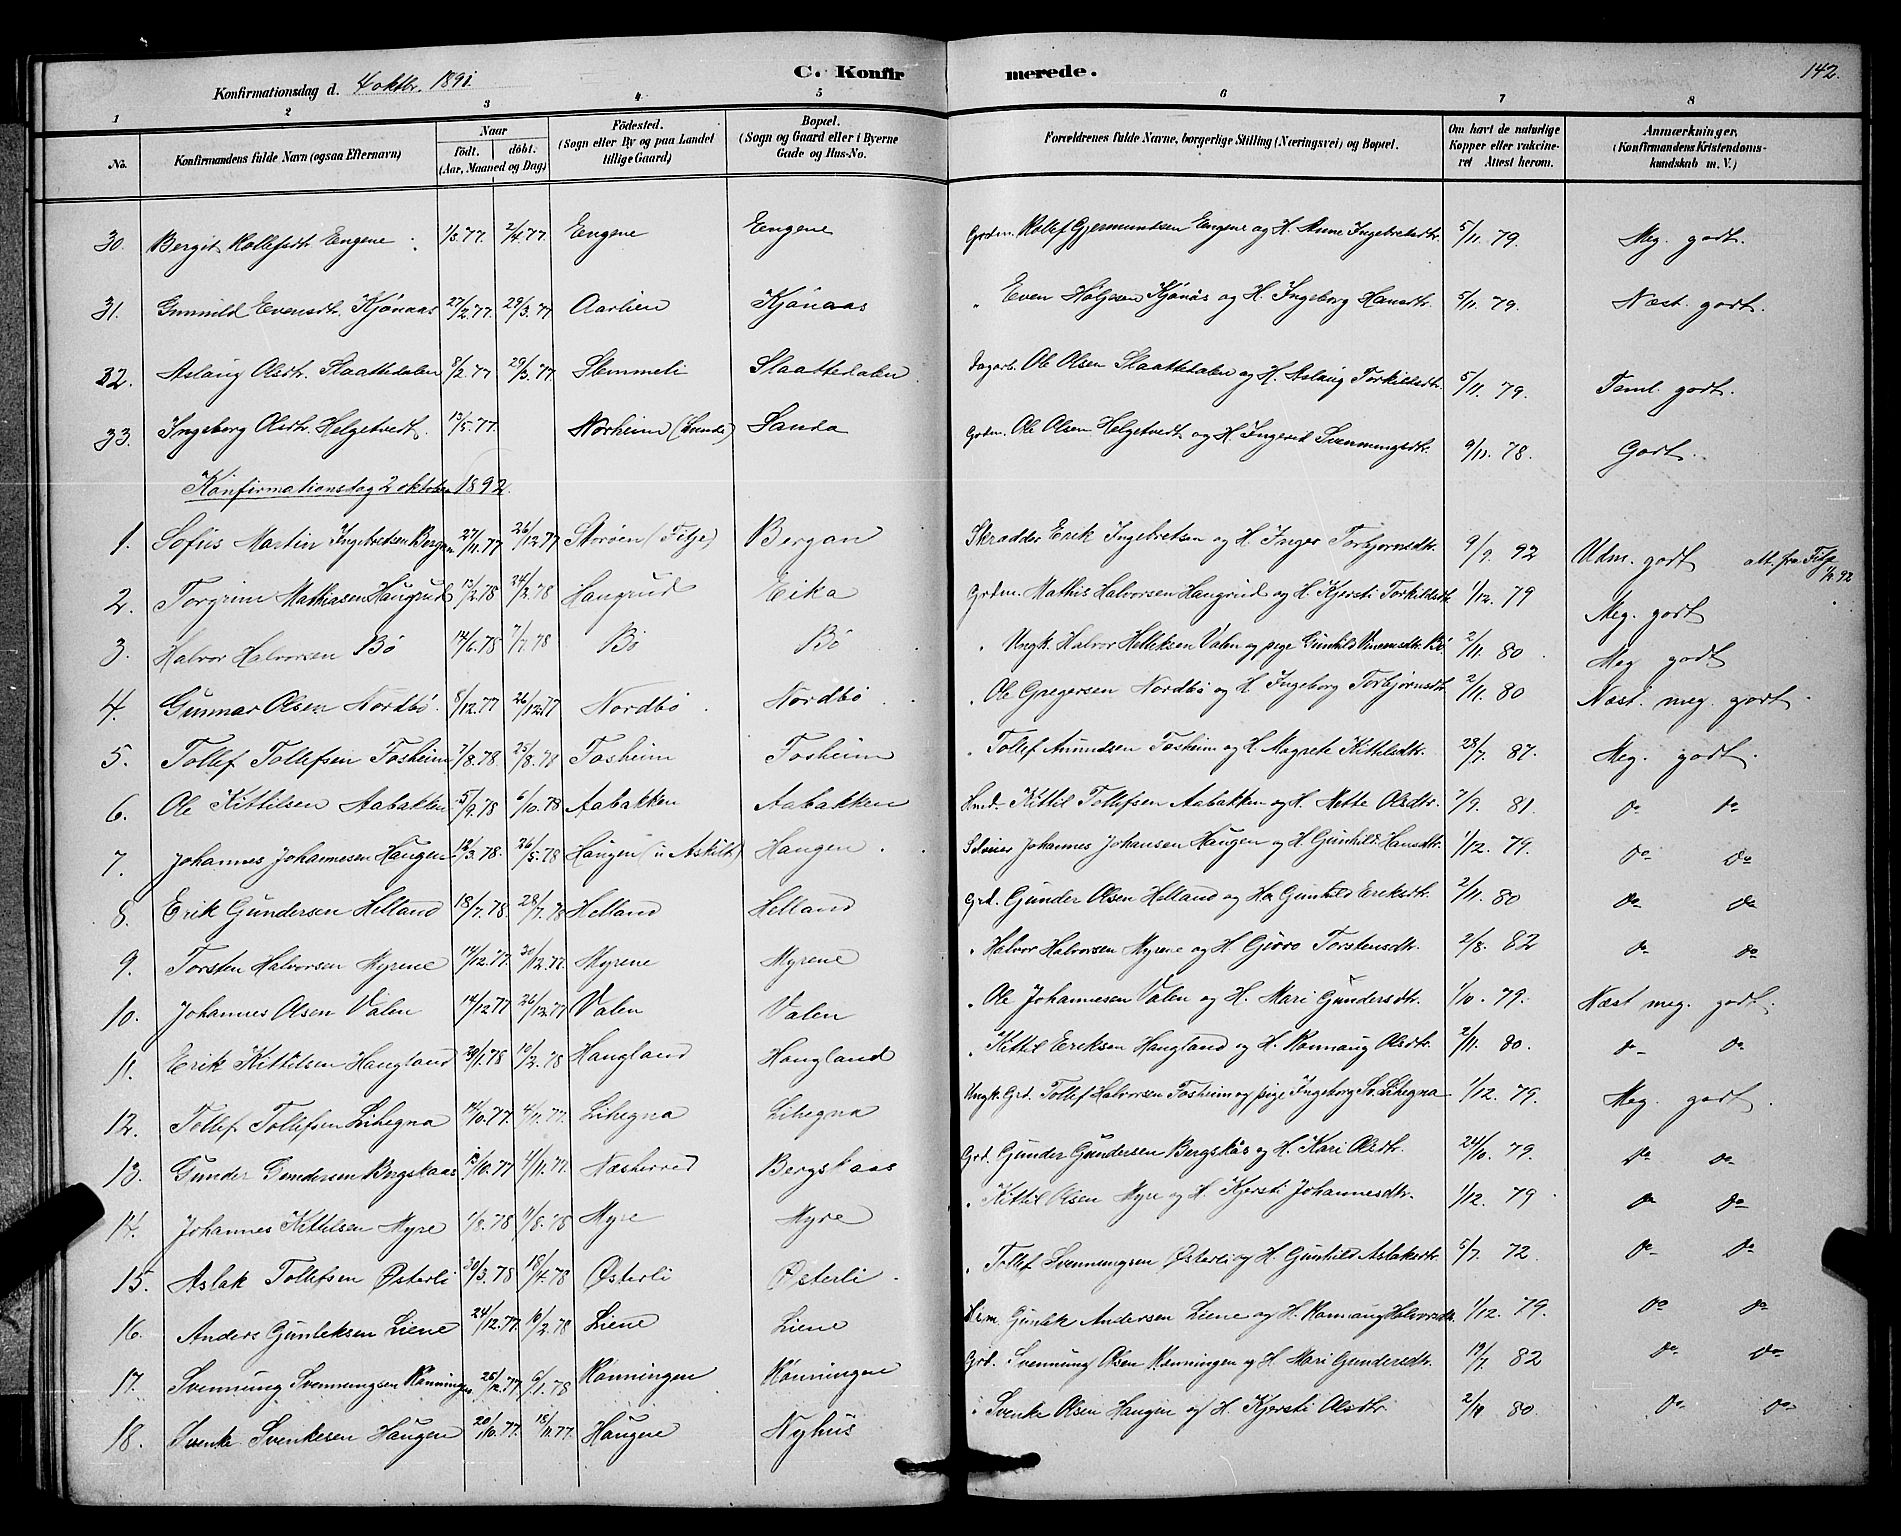 142.
C. Konfirmerede.
Konfirmationsdag d. 4 oktbr. 1891.
1 2 3 4 5 6 7 8
No. Konfirmandens fulde Navn (ogsaa Efternavn) Naar født. døbt. (Aar, Maaned og Dag) Fødested. (Sogn eller By og paa Landet tillige Gaard) Bopæl. (Sogn og Gaard eller i Byerne Gade og Hus-No. Forældrenes fulde Navne, borgerlige Stilling (Næringsvei) og Bopæl. Om havt de naturlige Kopper eller vakcineret Attest herom. Anmærkninger, (Konfirmandens Kristendomskundskab m. V.)
30. Bergit Rollefsdt. Engene 1/3.77. 2/4.77. Engene Engene Grdm. Rollef Gjermundsen Engene og H. Anne Ingebretsdtr. 5/11. 79. Meg. godt.
31. Gunnild Evensdt. Kjönaas 27/2.77 29/3.77 Aarlien Kjönaas " Even Holgesen Kjönås og H. Ingeborg Hansdtr. 5/11. 79. Næst. godt.
32. Aslaug Olsdt. Slaattedalen 8/2.77 29/3.77 Stemmeli Slaattedalen Dagarb. Ole Olsen Slaattedalen og H. Aslaug Torkildsdtr. 5/11. 79. Teml. godt.
33. Ingeborg Olsdtr. Helgetvedt. 13/5.77. Norheim (Lunde) Sanda Grdm. Ole Olsen Helgetvedt og H. Ingerid Svenningsdtr. 9/11. 78. Godt.
Konfirmationsdag 2 oktober 1892.
1. Sofus Martin Ingebretsen Bergan 27/11.77 26/12.77 Storöen (Fitje) Bergan Skrædder Erik Ingebretsen og H. Inger Torbjornsdtr. 9/9. 92 Udm. godt att. fra
2. Torgrim Mathiasen Haugrud 13/2.78 24/3.78 Haugrud Eika Grdm. Mathis Halvorsen Haugrud og H. Kjersti Torkildsdtr. 1/12. 79 Meg. godt
3. Halvor Halvorsen Bö 14/6.78 7/7.78 Bö Bö " Ungk. Halvor Helleksen Valen og pige Gunhild Bö 2/11. 80 Meg godt
4. Gunnar Olsen Nordbö. 8/12.77 26/12.77 Nordbö Nordbö " Ole Gregersen Nordbö og H. Ingeborg Torbjörnsdtr. 2/11. 80 Næst. meg. godt.
5. Tollef Tollefsen Fosheim 7/8.78 25/8.78 Fosheim Fosheim " Tollef Amundsen Fosheim og H. Magrete Kittilsdtr. 28/7. 87. Meg. godt.
6. Ole Kittilsen Aabakken 5/9.78 6/10.78 Aabakken Aabakken Hmd. Kittil Tollefsen Aabakken og H. Mette Olsdtr. 7/9. 81 do do
7. Johannes Johannesen Haugen 12/3.78. 26/5.78 Haugen Haugen Selveier Johannes Johansen Haugen og H Gunhild Hansdtr. 1/12. 79. do do
8. Erik Gundersen Helland 18/7.78. 28/7.78 Helland Helland Grd. Gunder Olsen Helland og H. Gunhild Eriksdtr. 2/11. 80 do do
9. Torsten Halvorsen Myrene 14/12.77. 26/12.77. Myrene Myrene " Halvor Halvorsen Myrene og H. Torstensdtr. 2/8. 82 do do
10. Johannes Olsen Valen 14/12.77 26/12.77 Valen Valen " Ole Johannesen Valen og H. Mari Gundersdtr. 1/10. 79. Næst meg. godt.
11. Erik Kittilsen Haugland 29/1.78 10/2.78 Haugland Haugland " Kittil Eriksen Haugland og H. Rannaug Olsdtr. 2/11. 80. do do
12. Tollef Tollefsen Lihegna 14/10.77. 4/11.77. Lihegna Lihegna Ungk. Grd. Tollef Halvorsen Fosheim og pige Ingeborg Lihegna 1/12. 79. Meg. godt.
13. Gunder Gundersen Bergskaas 15/10.77 4/11.77. Næsherred Bergskaas Grd. Gunder Gundersen Bergskås og H. Kari Olsdtr. 24/10. 79. do do
14. Johannes Kittilsen Myre 1/8.78 11/8.78 Myre Myre " Kittil Olsen Myre og H. Kjersti Johannesdtr. 1/12. 79 do do
15. Aslak Tollefsen Østerli 30/3.78 18/4.78 Østerli Østerli " Tollef Svennungsen Østerli og H. Gunhild Aslaksdtr. 5/7. 72 do do
16. Anders Gunleksen Liene 24/12.77. 10/2.78 Liene Liene Gunlek Andersen Liene og H. Rannaug Halvorsdtr. 1/12. 79. do do
17. Svennung Svennungsen Rønningen 25/12.77. 6/1.78 Rønningen Rønningen Grd. Svennung Olsen Rønningen og H. Mari Gundersdtr. 19/7 82 do do
18. Svenke Svenkesen Haugen 20/10.77. 18/11.77. Haugene Nyhus " Svenke Olsen Haugen og H. Kjersti Olsdtr. 2/11 80. do do